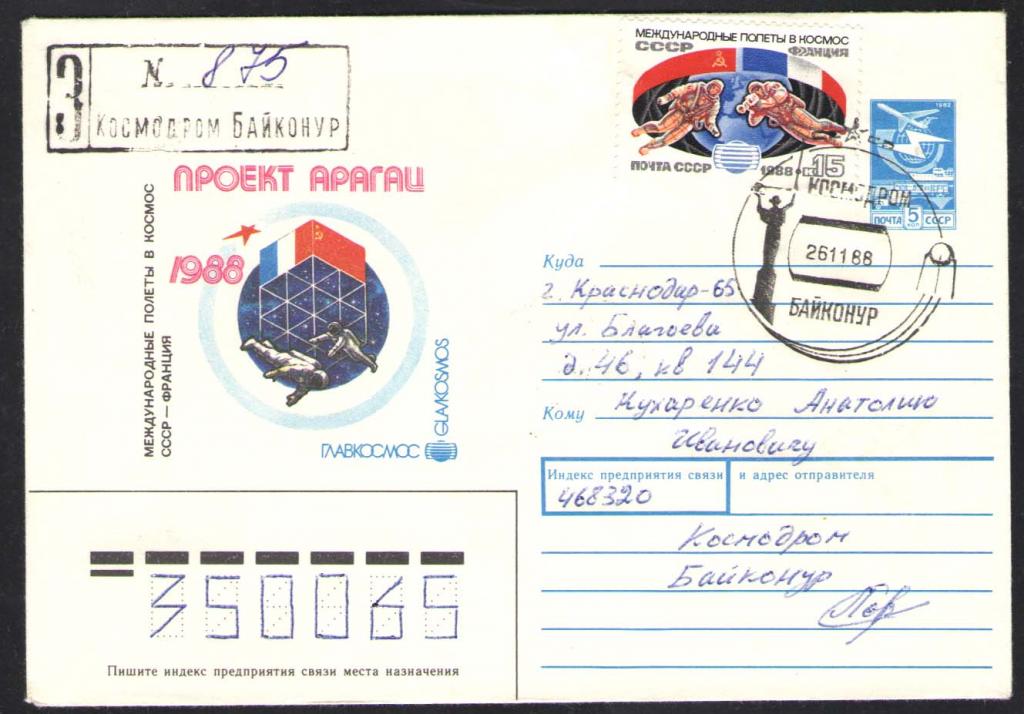 З
№ 875
Космодром Байконур
ПРОЕКТ АРАГАЦ
1988
МЕЖДУНАРОДНЫЕ ПОЛЕТЫ В КОСМОС
СССР — ФРАНЦИЯ
ГЛАВКОСМОС
GLAVKOSMOS
МЕЖДУНАРОДНЫЕ ПОЛЕТЫ В КОСМОС
СССР ФРАНЦИЯ
ПОЧТА СССР 1988 • к 15
1982
ПОЧТА 5 КОП СССР
КОСМОДРОМ
261188
БАЙКОНУР
Куда
г. Краснодар-65
ул. Благоева
д. 46, кв 144
Кому Кухаренко Анатолию
Ивановичу
Индекс предприятия связи и адрес отправителя
468320
Космодром
Байконур
350065
Пишите индекс предприятия связи места назначения